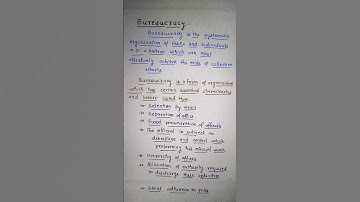 Bureaucracy.
Bureaucracy is the systematic
organization of tasks and individuals
in to a pattern which can most
effectively achieve the ends of collective
efforts
Bureaucracy is a form of organisation
which has certain essential characteristics
and Weber listed them
→ Selection by merit
→ Separation of office
→ Fixed remuneration of officials
→ The official is subject to
discipline and control while
performing his official work
→ Hierarchy of offices
→ Allocation of authority required
to discharge these
→ Strict adherence to rules